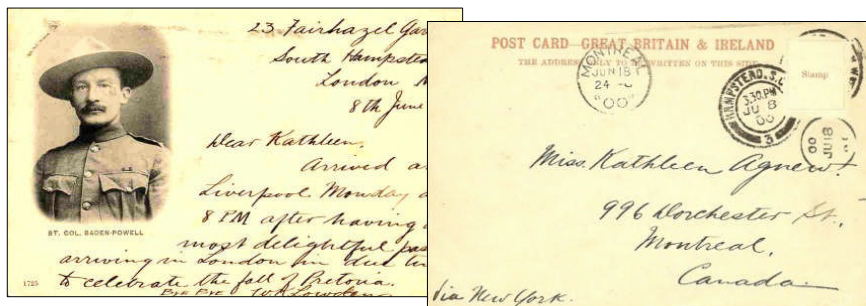 23 Fairhazel Gar
South Hampstea
London N
8th June
Dear Kathleen,
Arrived a
Liverpool Monday a
8 PM after having
most delightful pas
arriving in London in due
to celebrate the fall of Pretoria.
Bye Bye W.A. Lowden
ST. COL. BADEN-POWELL
1725
POST CARD GREAT BRITAIN & IRELAND
THE ADDRESS ONLY TO BE WRITTEN ON THIS SIDE
Stamp
MONTREAL
JUN 18
"00"
HAMPSTEAD. S.O
3.30.PM
JU 8
00
3
JU 18
00
Miss. Kathleen Agnew
996 Dorchester St.,
Montreal,
Canada
via New York.